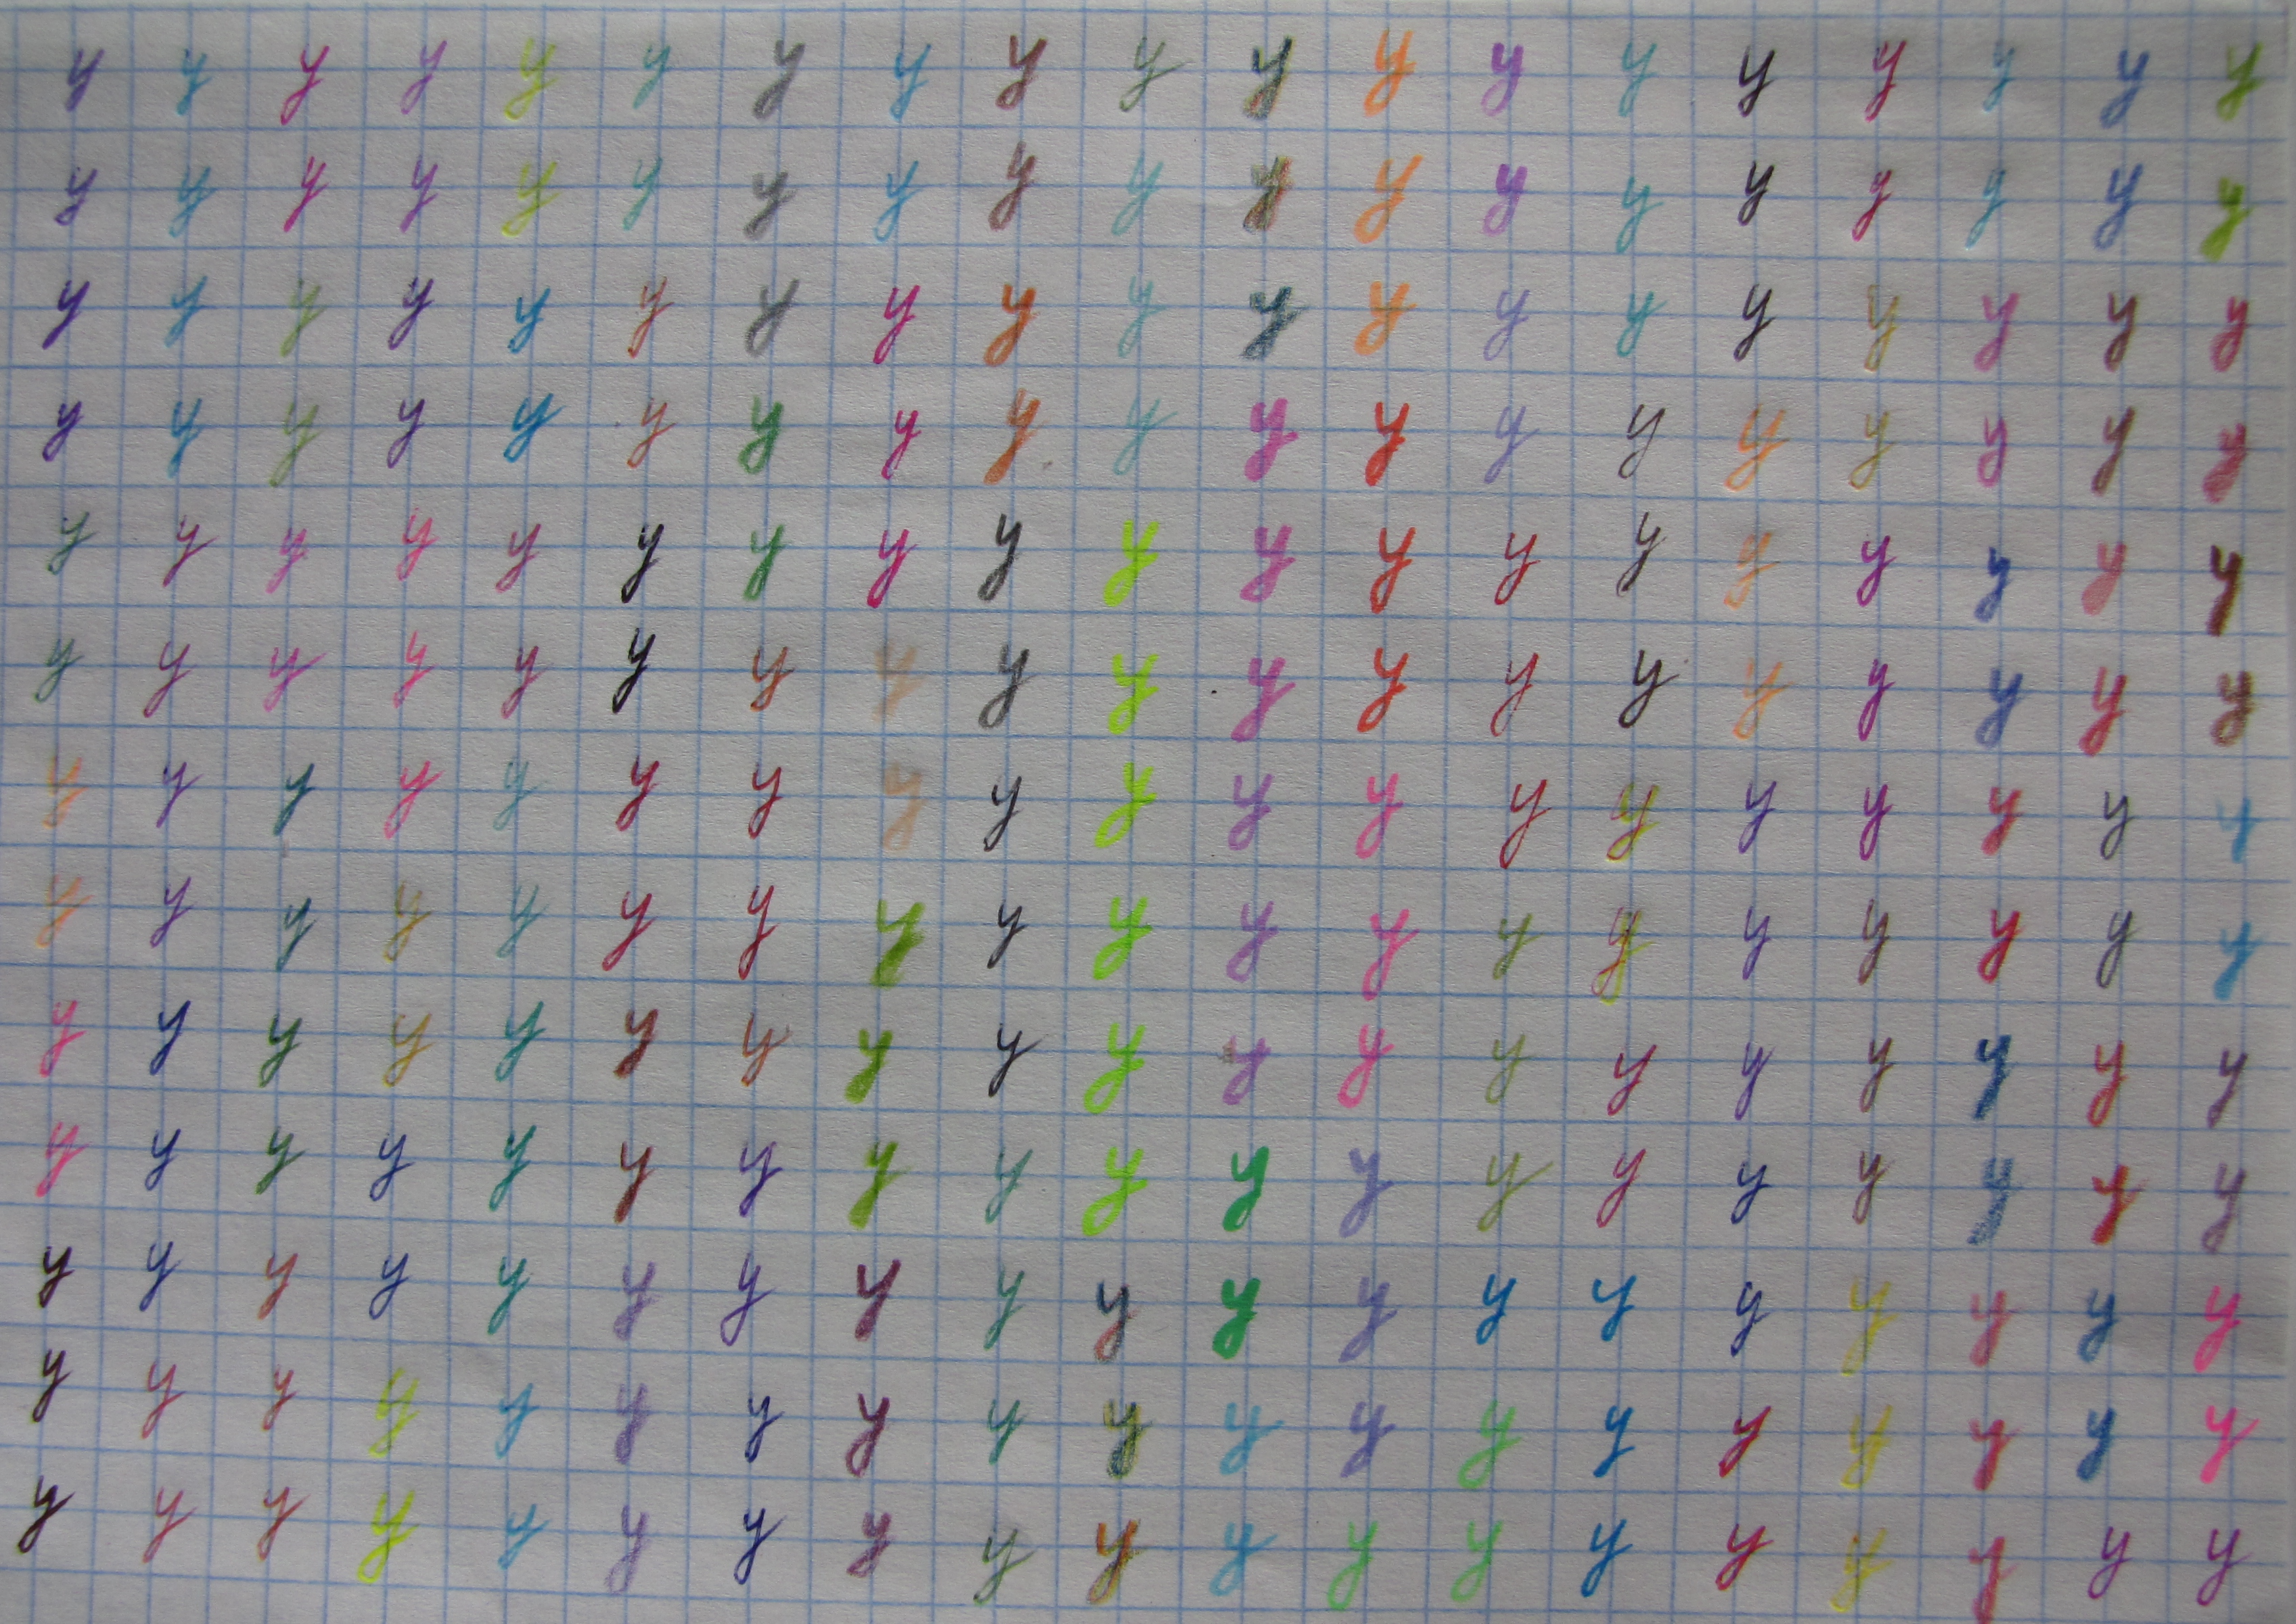 y y y y y y y y y y y y y y y y y y y
y y y y y y y y y y y y y y y y y y y
y y y y y y y y y y y y y y y y y y y
y y y y y y y y y y y y y y y y y y y
y y y y y y y y y y y y y y y y y y y
y y y y y y y y y y y y y y y y y y y
y y y y y y y y y y y y y y y y y y y
y y y y y y y y y y y y y y y y y y y
y y y y y y y y y y y y y y y y y y y
y y y y y y y y y y y y y y y y y y y
y y y y y y y y y y y y y y y y y y y
y y y y y y y y y y y y y y y y y y y
y y y y y y y y y y y y y y y y y y y